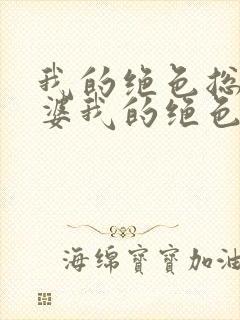 我的绝色总
婆我的绝色
海绵寶寶加油